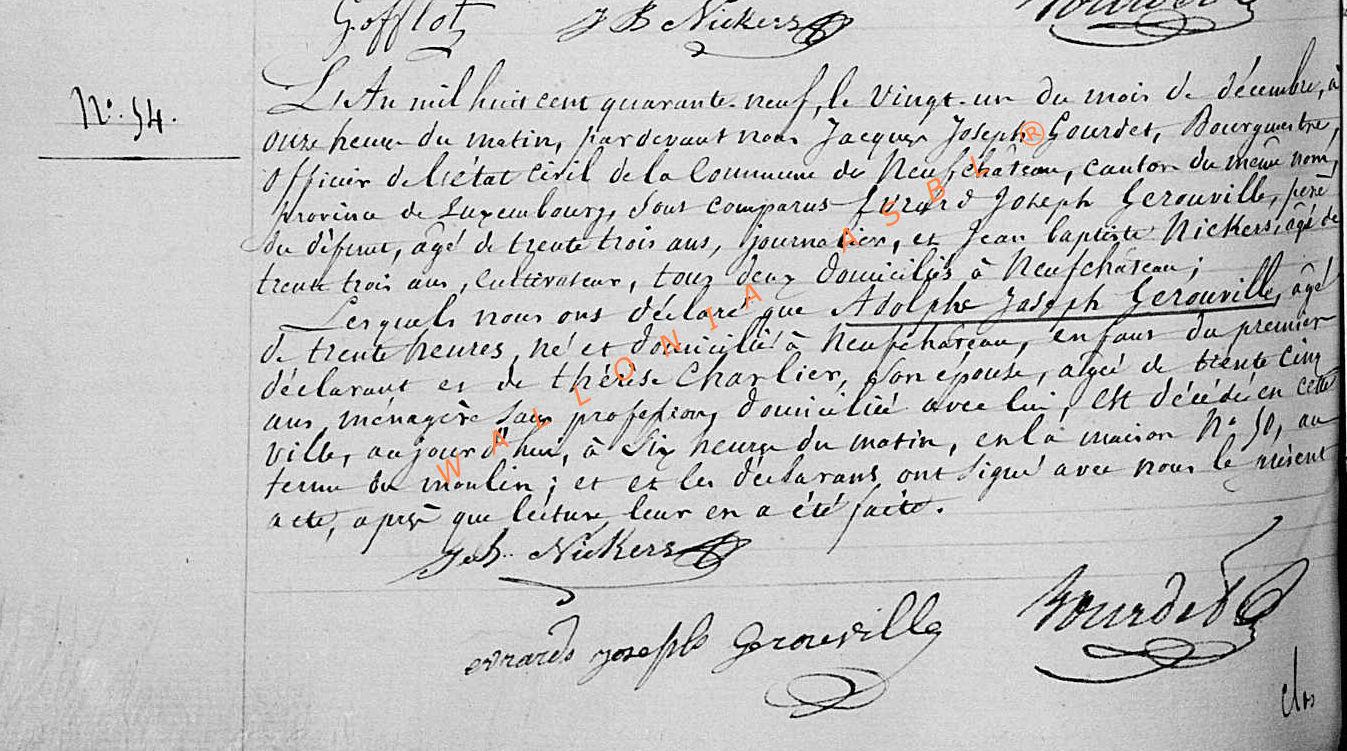 Gofflot J B Nickers
N.° 54.
L'An mil huit cent quarante-neuf, le vingt-un du mois de décembre, à
onze heures du matin, pardevant nous Jacques Joseph Gourdet, Bourgmestre,
officier de l'état civil de la Commune de Neufchâteau, canton du même nom,
province de Luxembourg, sont comparus Evrard Joseph Gerouville, père
du défunt, âgé de trente trois ans, journalier, et Jean baptiste Nickers, âgé de
trente trois ans, Cultivateur, tous deux domiciliés à Neufchâteau;
Lesquels nous ont déclaré que Adolphe Joseph Gerouville, âgé
de trente heures, né et domicilié à Neufchâteau, enfant du premier
déclarant et de thérèse Charlier, son épouse, agée de trente cinq
ans, ménagère sans profession, domiciliée avec lui, est décédé en cette
ville, aujourd'hui, à six heures du matin, en la maison N° 50, au
terme du moulin; et et les déclarans ont signé avec nous le présent
acte, après que lecture leur en a été faite.
J.B. Nickers
evrard joseph Gerouville
Gourdet
clos
WALLONIA ASBL ®